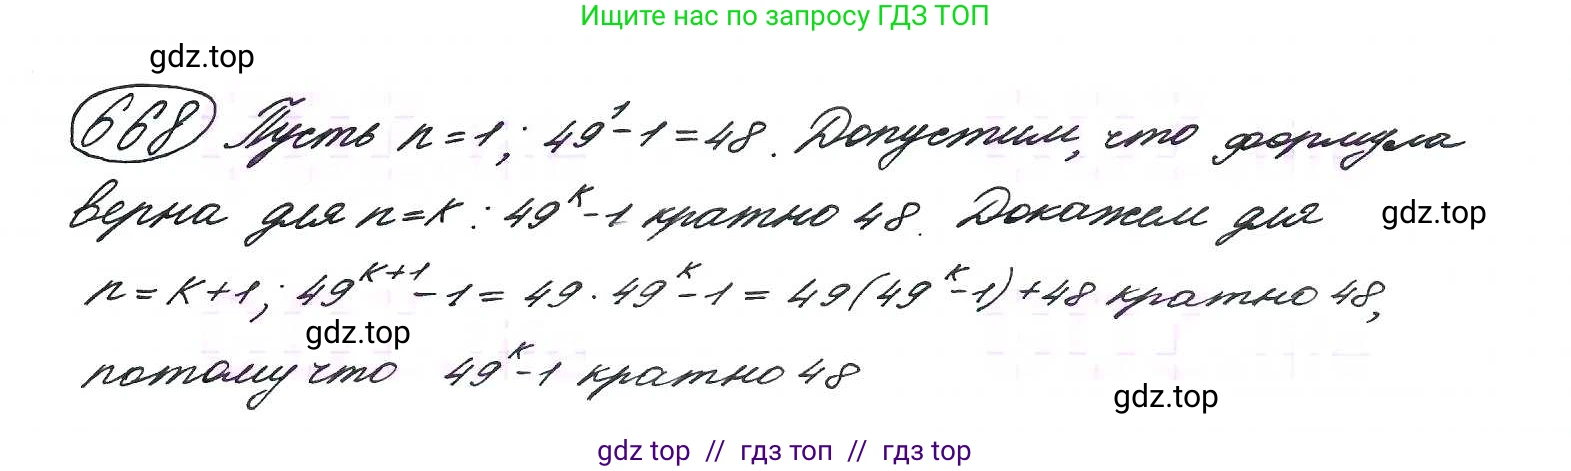 Ищите нас по запросу ГДЗ ТОП
gdz.top
668 Пусть n=1; 49¹-1=48. Допустим, что формула
верна для n=k: 49ᵏ-1 кратно 48. Докажем для
gdz.top
n=k+1; 49ᵏ⁺¹-1=49·49ᵏ-1=49(49ᵏ-1)+48 кратно 48,
gdz.top
потому что 49ᵏ-1 кратно 48
gdz.top
gdz top // гдз топ // гдз top